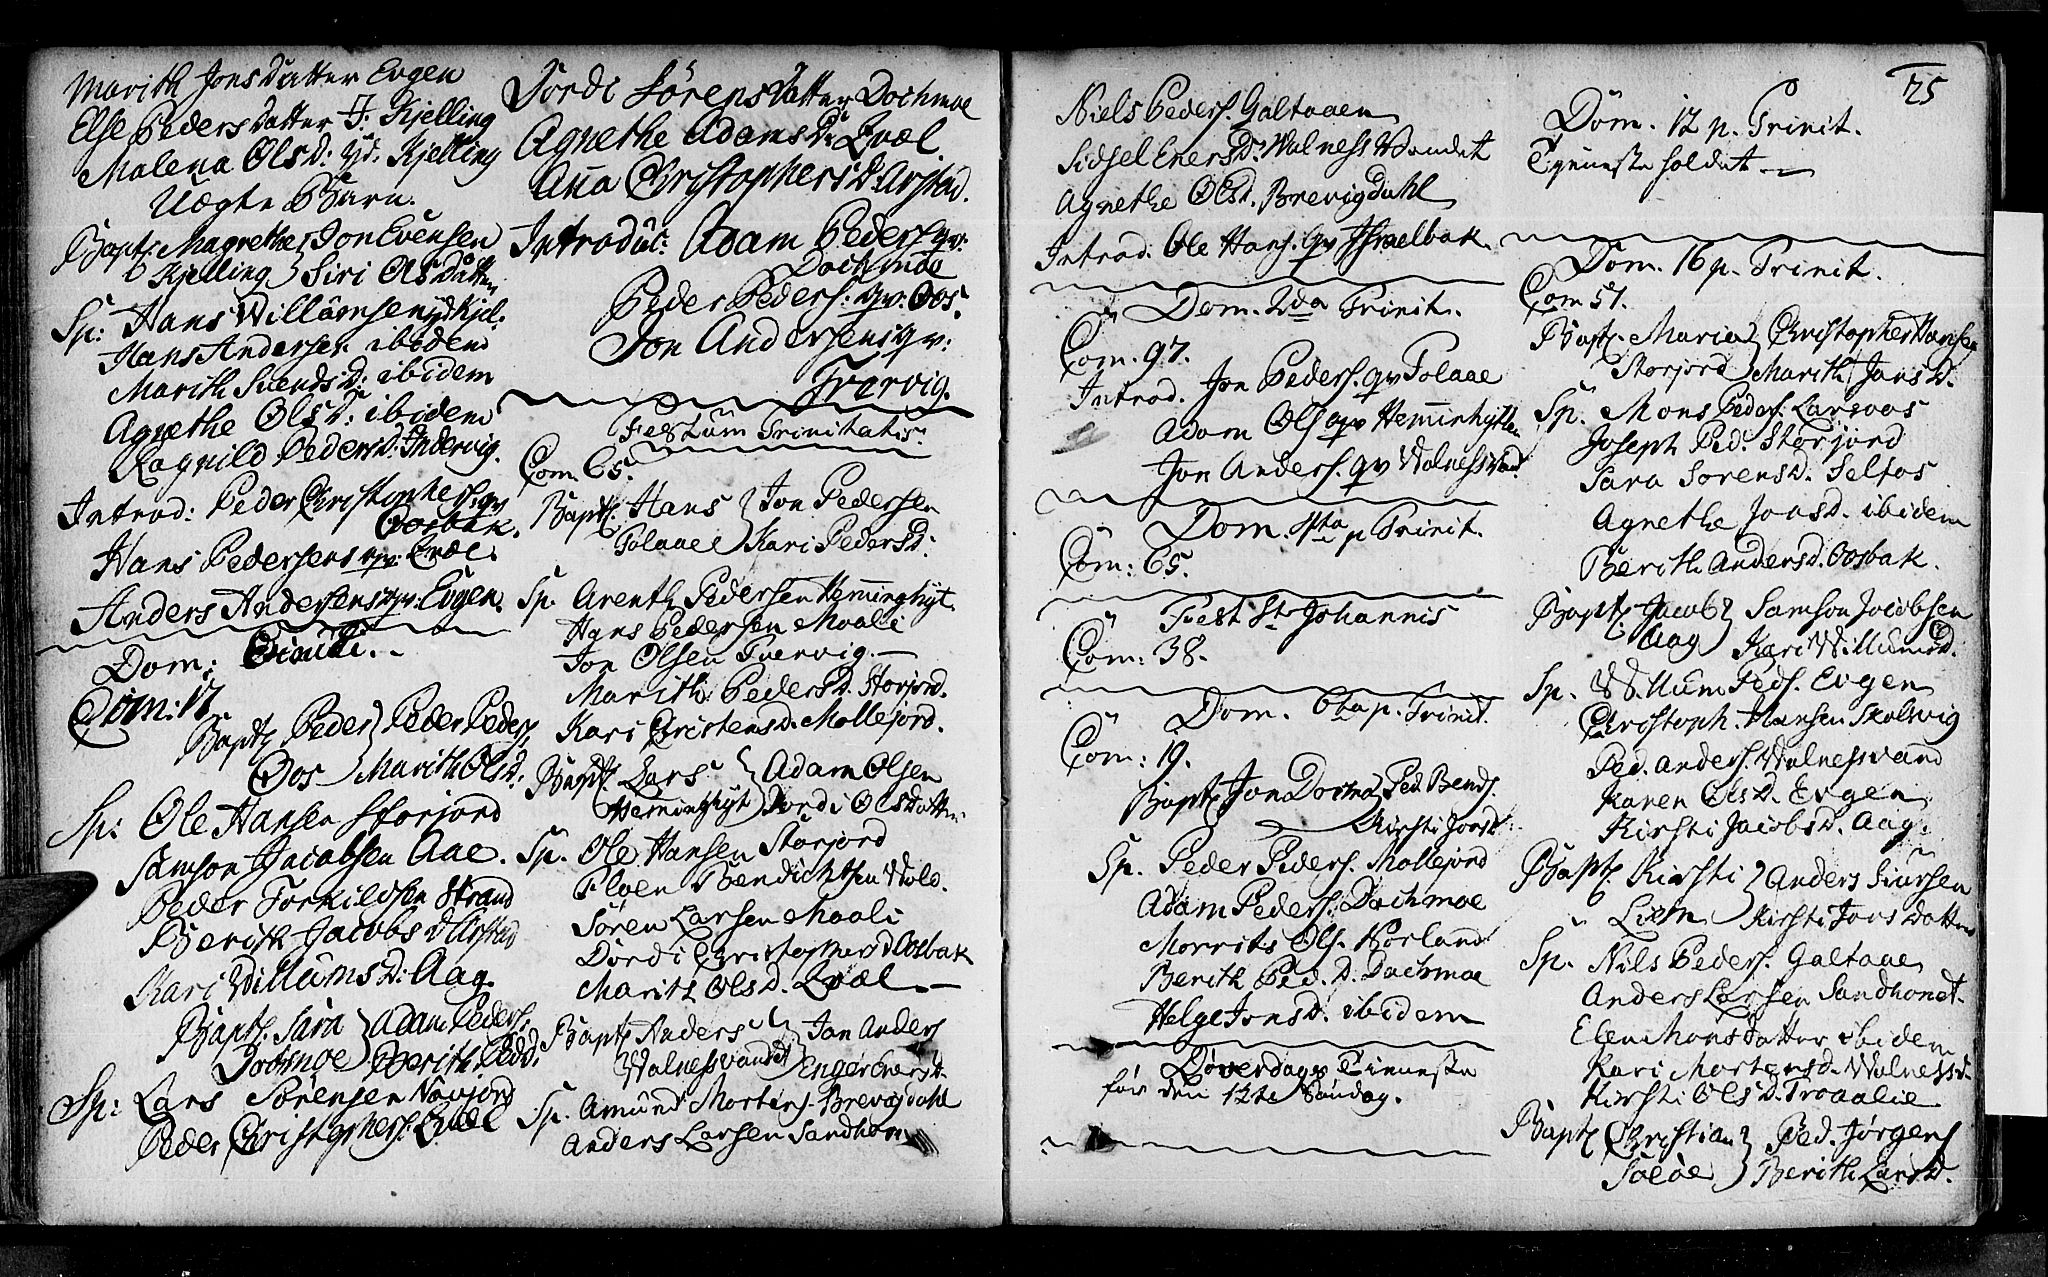 Marith Jonsdatter Evgen
Else Pedersdatter J. Kjelling
Malena Olsd: Yd. Kjelling
Uægte Barn.
Bapt. Magrethe } Jon Evensen
Kjelling } Siri Olsdatter
Sp: Hans Willumsen yd Kjel.
Hans Andersen ibidem
Marith Svendsd: ibidem
Agnethe Olsd: ibidem
Ragnild Pedersd: Indervig.
Introd: Peder Christophers. qv
Oosbak.
Hans Pedersens qv. Evæl.
Anders Andersens qv. Evgen.
Dom: Exaudi.
Com: 17
Bapt. Peder } Peder Peders.
Oos } Marith Olsd:
Sp: Ole Hansen Storjord
Samson Jacobsen Aae.
Peder Torkildsen Strand
Berith Jacobsd Arstad
Kari Willumsd: Aag.
Bapt. Sara } Adam Peders.
Dochmoe } Berith Pedd.
Sp: Lars Sørensen Navjord
Peder Christophers. Evæl
Dordi Sørensdatter Dochmoe
Agnethe Adamsd: Evæl
Anna Christophersd: Arstad.
Introduc: Adam Peders. qv:
Dochmoe
Peder Peders: qv: Oos.
Jon Andersens qv:
Trærvig.
Festum Trinitatis.
Com. 65.
Bapt. Hans } Jon Pedersen
Tolaae } Kari Pedersd:
Sp. Arenth Pedersen Hemminghyt.
Hans Pedersen Moali
Jon Olsen Tvervig.
Marith Pedersd. Storjord.
Kari Christensd. Mollejord.
Bapt. Lars } Adam Olsen
Hemminghyt } Dordi Olsdatter
Sp. Ole Hansen Storjord
Eloen Bendichtsen Wold.
Søren Larsen Moali
Dordi Christophersd Oosbak
Marith Olsd. Evæl.
Bapt. Anders } Jon Anders
Walnessvandet } Engør Enersd.
Sp. Amund Mortens. Brevigdahl
Anders Larsen Sandhorn
125
Niels Peders. Galtaaen
Sidsel Enersd. Walness Vandet
Agnethe Olsd. Brevigdahl
Introd. Ole Hans. qv Ismelbak.
Dom. 2da Trinit.
Com. 97.
Introd. Jon Peders. qv Tolaae
Adam Ols qv Hemminhytten
Jon Anders. qv Walnessvand.
Dom. 4ta p Trinit.
Com: 65.
Fest St Johannis
Com: 38.
Dom. 6ta p. Trinit.
Com: 19.
Bapt. Jon Docmo } Ped. Bends.
Kirsti Jonsd.
Sp. Peder Peders. Mollejord
Adam Peders. Dochmoe
Morrits Ols. Norland
Berith Ped. D. Dochmoe
Helge Jonsd. ibidem
Døverdags Tienneste
før den 12te Søndag.
Dom. 12 p. Trinit.
Tjenneste holdet
Dom. 16 p. Trinit.
Com 51.
Bapt. Maria } Christopher Hansen
Storjord } Marith Jonsd.
Sp. Mons Peders. Larsoos
Joseph Ped. Storjord
Sara Sorensd. Seltos
Agnethe Jonsd. ibidem
Berith Andersd. Oosbak.
Bapt. Jacob } Samson Jocobsen
Aag } Kari Willumsd.
Sp. Willum Peds. Evgen
Christoph. Hansen Skolsvig
Ped. Anders. Walnessvand
Karen Olsd. Evgen
Kirsti Jacobsd. Aag.
Bapt. Kirsti } Anders Siursen
Lien } Kirsti Jonsdatter
Sp. Nils Peders. Galtaae
Anders Larsen Sandhonet
Elen Monsdatter ibidem
Kari Mortensd. Walnessv.
Kirsti Olsd. Troaalie
Bapt. Christian } Ped. Jørgens
Soløe } Berith Larsd.